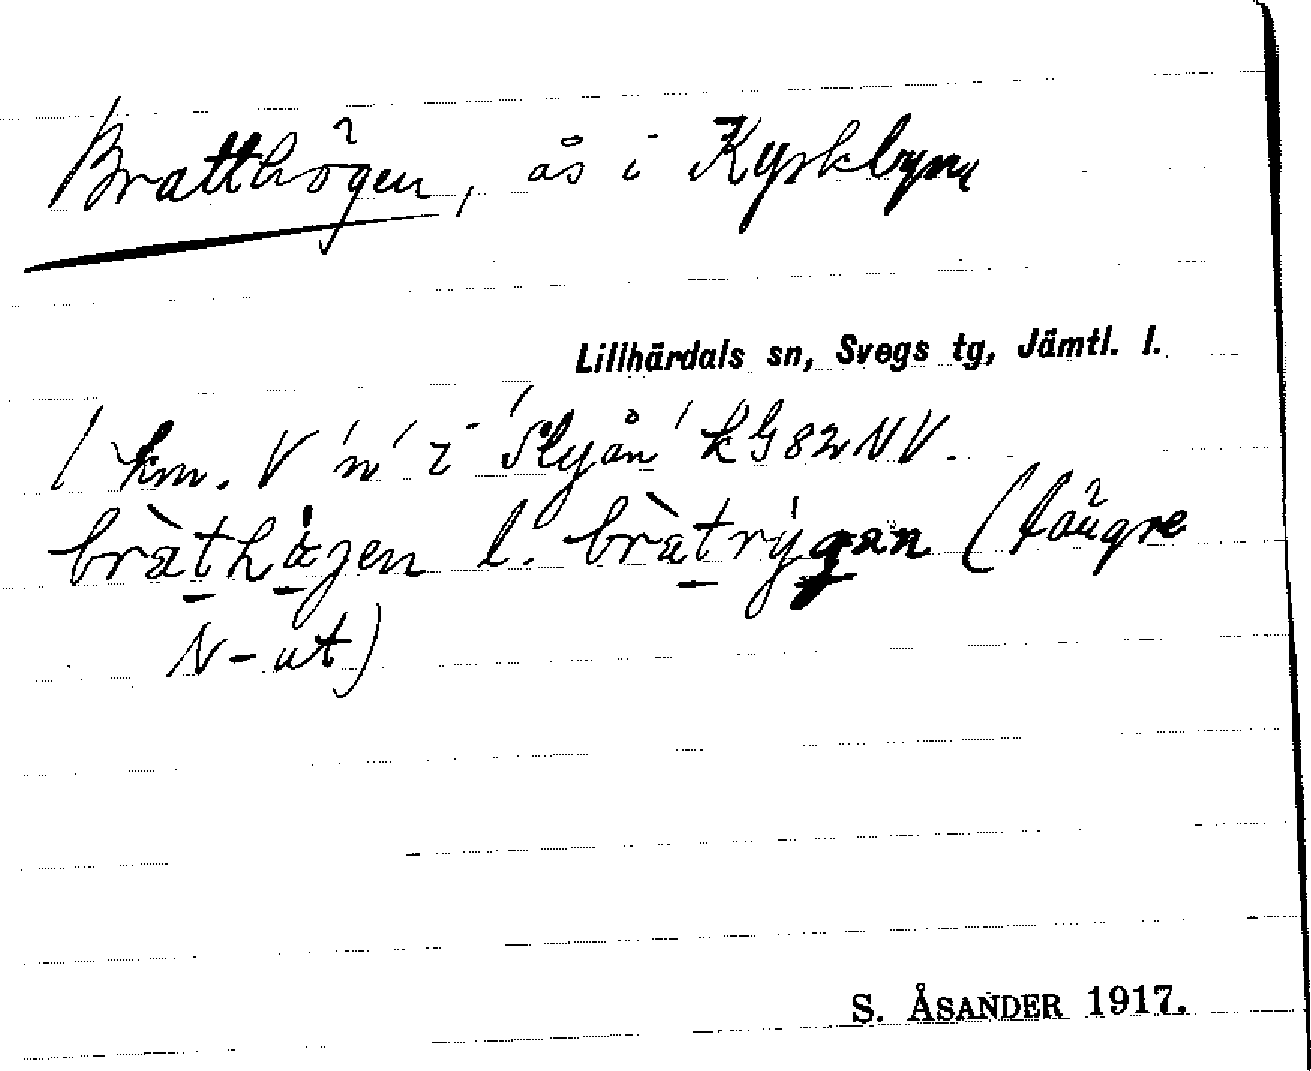 Bratthögen, ås i Kyrkbyn
Lillhärdals sn, Svegs tg, Jämtl. l.
1 km. V 'n' i 'Slyån' kG82NV.
bràthǿgen l. bràtrýgan (längre
N-ut)
S. ÅSANDER 1917.